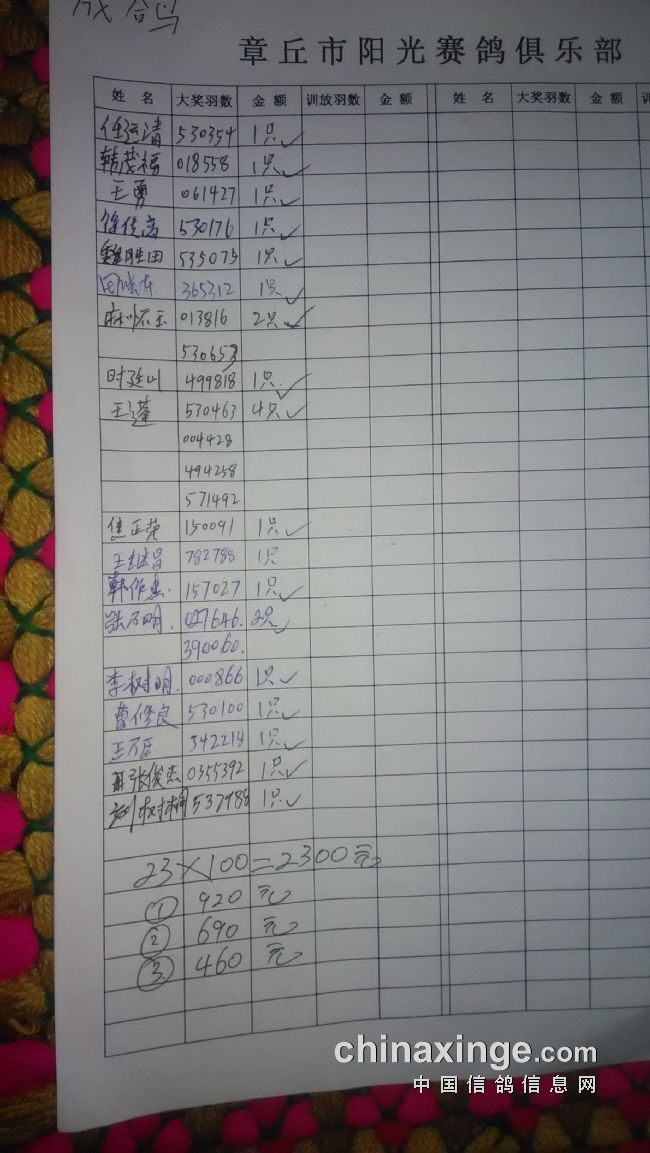 成鸽
章丘市阳光赛鸽俱乐部
姓 名 大奖羽数 金 额 训放羽数 金 额 姓 名 大奖羽数 金 额 训
任运清 530354 1只✓
韩茂福 018558 1只✓
王勇 061427 1只✓
徐传高 530176 1只✓
魏胜田 535075 1只✓
365312 1只✓
麻怀玉 013816 2只✓
530653
时延川 499818 1只✓
王莲 530463 4只✓
004428
494258
571492
焦正荣 150091 1只✓
王继昌 782788 1只
韩作忠 157027 1只✓
张万明 027646. 2只✓
390060.
李树明. 000866 1只✓
曹修良 530100 1只✓
王万臣 342214 1只✓
张俊杰 0355392 1只✓
刘树楠 537988 1只✓
23×100=2300元
① 920 元
② 690 元
③ 460 元
chinaxinge.com
中国信鸽信息网